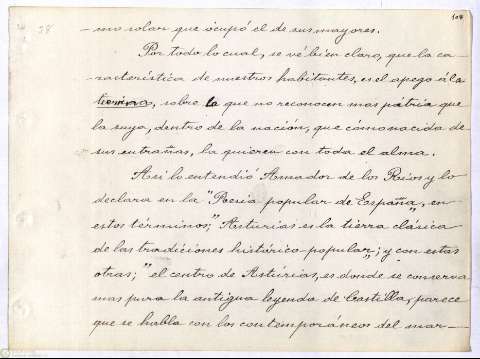 104
28
mo solar que ocupó el de sus mayores.
Por todo lo cual, se vé bien claro, que la ca-
racterística de nuestros habitantes, es el apego á la
tierra, sobre la que no reconocen mas pátria que
la suya, dentro de la nación, que cómo nacida de
sus entrañas, la quieren con toda el alma.
Asi lo entendió Amador de los Rios y lo
declara en la "Poesia popular de España", en
estos términos; "Asturias es la tierra clásica
de las tradiciones histórico popular"; y con estas
otras; "el centro de Astúrias, es donde se conserva
mas pura la antigua leyenda de Castilla, parece
que se habla con los contemporáneos del mar-